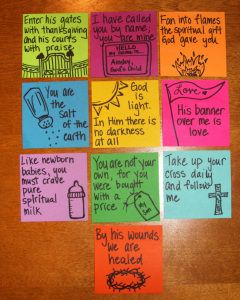 Enter his gates
with thanksgiving
and his courts
with praise
I have called
you by name;
you are mine
HELLO
my name is...
God's Child
Fan into flames
the spiritual gift
God gave you
You are
the
salt
of the
earth
God
is
light.
In Him there is
no darkness
at all
Love
His banner
over me is
love
Like newborn
babies, you
must crave
pure
spiritual
milk
You are not your
own, for you
were bought
with a
price
Take up your
cross daily
and follow
me
By his wounds
we are
healed